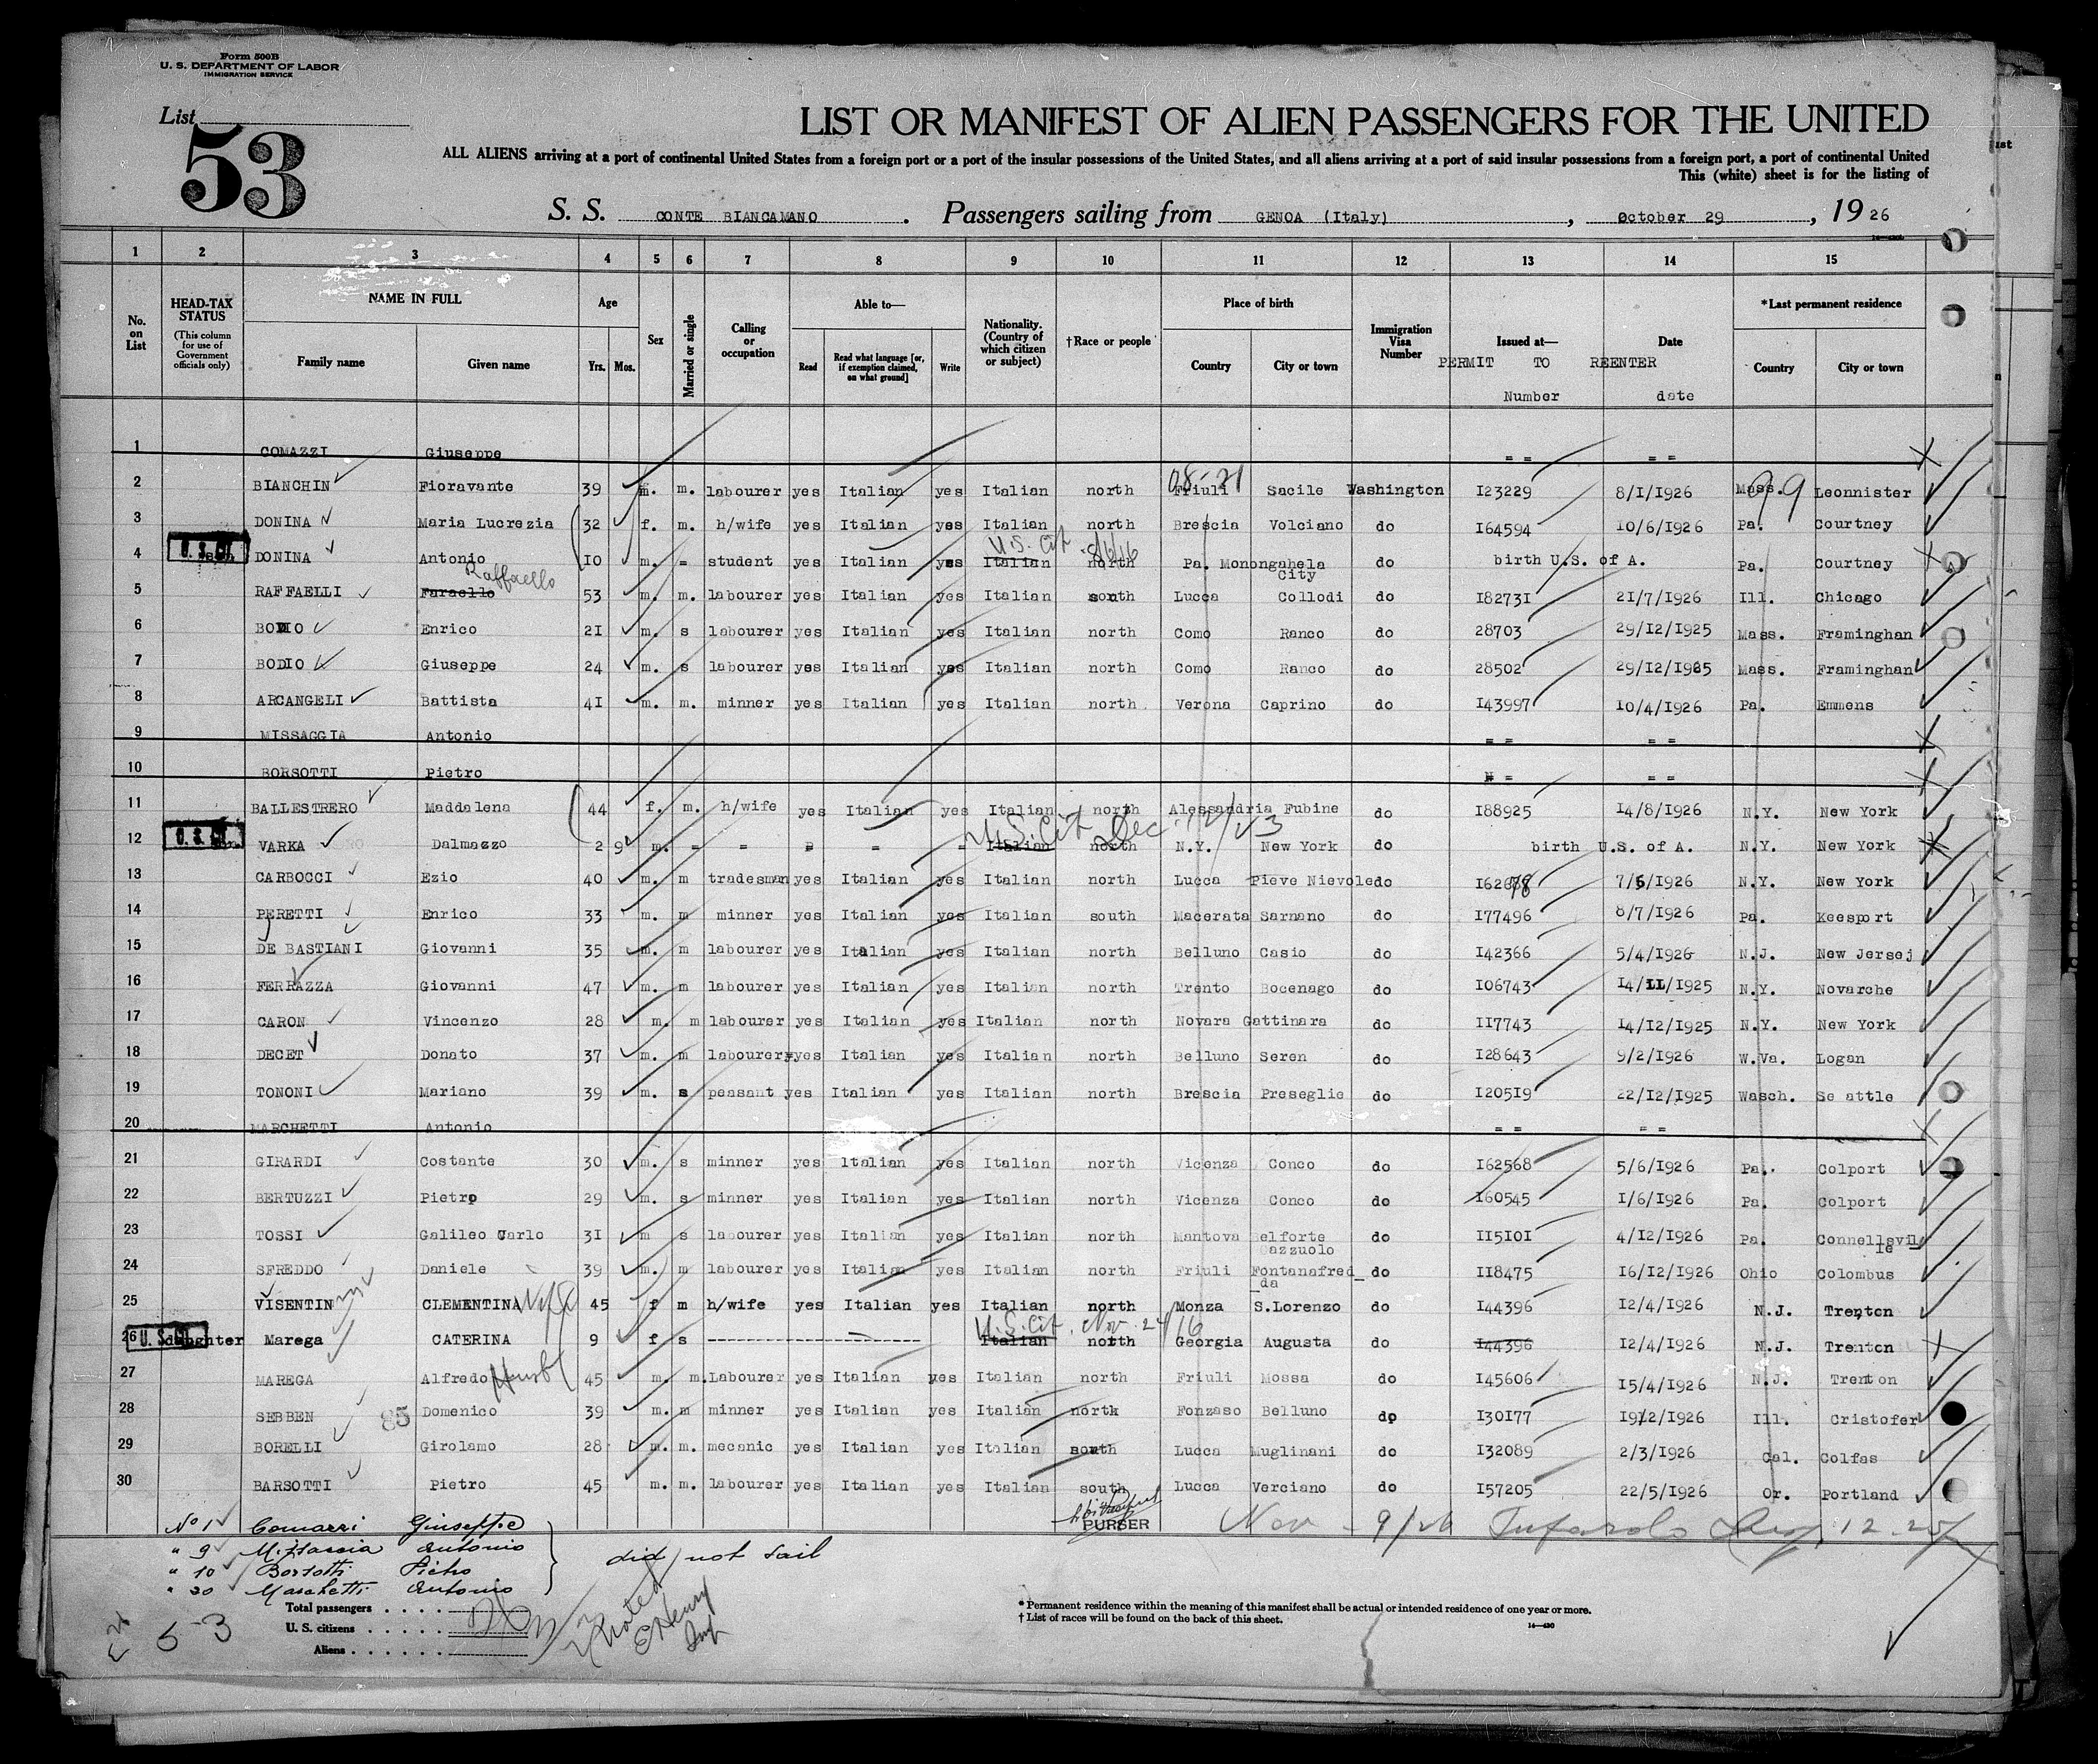 Form 500B
U. S. DEPARTMENT OF LABOR
IMMIGRATION SERVICE
List
53
LIST OR MANIFEST OF ALIEN PASSENGERS FOR THE UNITED
ALL ALIENS arriving at a port of continental United States from a foreign port or a port of the insular possessions of the United States, and all aliens arriving at a port of said insular possessions from a foreign port, a port of continental United
This (white) sheet is for the listing of
S. S. CONTE BIANCAMANO. Passengers sailing from GENOA (Italy), October 29, 1926
1 2 3 4 5 6 7 8 9 10 11 12 13 14 15
No. on List
HEAD-TAX STATUS
(This column for use of Government officials only)
NAME IN FULL
Family name Given name
Age
Yrs. Mos.
Sex
Married or single
Calling or occupation
Able to—
Read Read what language [or, if exemption claimed, on what ground] Write
Nationality. (Country of which citizen or subject)
†Race or people
Place of birth
Country City or town
Immigration Visa Number
Issued at— Date
PERMIT TO REENTER
Number date
*Last permanent residence
Country City or town
1 COMAZZI Giuseppe = = = =
2 BIANCHIN Fioravante 39 m. m. labourer yes Italian yes Italian north Friuli Sacile Washington I23229 8/I/I926 Mass. Leonnister
99
3 DONINA Maria Lucrezia 32 f. m. h/wife yes Italian yes Italian north Brescia Volciano do I64594 10/6/I926 Pa. Courtney
U.S. Cit
4 DONINA Antonio IO m. = student yes Italian yes Italian north Pa. Monongahela City do birth U.S. of A. Pa. Courtney
Raffaello
5 RAFFAELLI Faraello 53 m. m. labourer yes Italian yes Italian south Lucca Collodi do I82731 2I/7/I926 Ill. Chicago
6 BODIO Enrico 2I m. s labourer yes Italian yes Italian north Como Ranco do 28703 29/I2/I925 Mass. Framinghan
7 BODIO Giuseppe 24 m. s labourer yes Italian yes Italian north Como Ranco do 28502 29/I2/I925 Mass. Framinghan
8 ARCANGELI Battista 4I m. m. minner yes Italian yes Italian north Verona Caprino do I43997 IO/4/I926 Pa. Emmens
9 MISSAGGIA Antonio = = = =
10 BORSOTTI Pietro = = = =
11 BALLESTRERO Maddalena 44 f. m. h/wife yes Italian yes Italian north Alessandria Fubine do I88925 I4/8/I926 N.Y. New York
U.S. Cit Dec. 12/23
12 VARKA Dalmazzo 2 9 m. = = = = = Italian north N.Y. New York do birth U.S. of A. N.Y. New York
13 CARBOCCI Ezio 40 m. m tradesman yes Italian yes Italian north Lucca Pieve Nievole do 7/5/I926 N.Y. New York
14 PERETTI Enrico 33 m. m minner yes Italian yes Italian south Macerata Sarnano do I77496 8/7/I926 Pa. Keesport
15 DE BASTIANI Giovanni 35 m. m labourer yes Italian yes Italian north Belluno Casio do I42366 5/4/I926 N.J. New Jersej
16 FERRAZZA Giovanni 47 m. m labourer yes Italian yes Italian north Trento Bocenago do I06743 I4/II/I925 N.Y. Novarche
17 CARON Vincenzo 28 m. m labourer yes Italian yes Italian north Novara Gattinara do II7743 I4/I2/I925 N.Y. New York
18 DECET Donato 37 m. m labourer yes Italian yes Italian north Belluno Seren do I28643 9/2/I926 W.Va. Logan
19 TONONI Mariano 39 m. s peasant yes Italian yes Italian north Brescia Preseglie do I20519 22/I2/I925 Wasch. Se attle
20 MARCHETTI Antonio = = = =
21 GIRARDI Costante 30 m. s minner yes Italian yes Italian north Vicenza Conco do I62568 5/6/I926 Pa. Colport
22 BERTUZZI Pietro 29 m. s minner yes Italian yes Italian north Vicenza Conco do I60545 I/6/I926 Pa. Colport
23 TOSSI Galileo Carlo 3I m s labourer yes Italian yes Italian north Mantova Belforte Gazzuolo do II5I0I 4/I2/I926 Pa. Connellsville
24 SFREDDO Daniele 39 m. m labourer yes Italian yes Italian north Friuli Fontanafred_da do II8475 I6/I2/I926 Ohio Colombus
25 VISENTIN CLEMENTINA Wife 45 f m h/wife yes Italian yes Italian north Monza S.Lorenzo do I44396 I2/4/I926 N.J. Trenton
U.S. Cit. Nov. 24/16
26 daughter Marega CATERINA 9 f s Italian north Georgia Augusta do I44396 I2/4/I926 N.J. Trenton
27 MAREGA Alfredo Husb 45 m. m. Labourer yes Italian yes Italian north Friuli Mossa do I45606 I5/4/I926 N.J. Trenton
28 SEBBEN 85 Domenico 39 m. m minner yes Italian yes Italian north Fonzaso Belluno do I30I77 I9/2/I926 Ill. Cristofer
29 BORELLI Girolamo 28 m. m. mecanic yes Italian yes Italian south Lucca Muglinani do I32089 2/3/I926 Cal. Colfas
30 BARSOTTI Pietro 45 m. m. labourer yes Italian yes Italian south Lucca Verciano do I57205 22/5/I926 Or. Portland
PURSER
Nov - 9/26
No 1 Comazzi Giuseppe
" 9 Missaggia Antonio
" 10 Borsotti Pietro
" 20 Marchetti Antonio
did not sail
Noted
E Henry
Insp
Total passengers
U. S. citizens
Aliens
53
* Permanent residence within the meaning of this manifest shall be actual or intended residence of one year or more.
† List of races will be found on the back of this sheet.